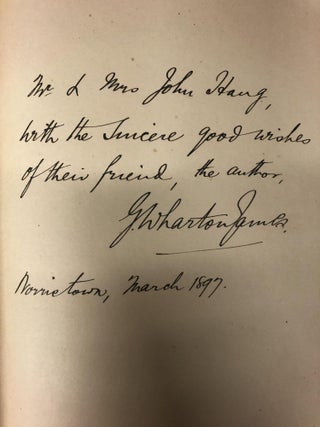 Mr & Mrs John Haug,
With the Sincere good wishes
of their friend, the author,
G Wharton James.
Norristown, March 1897.